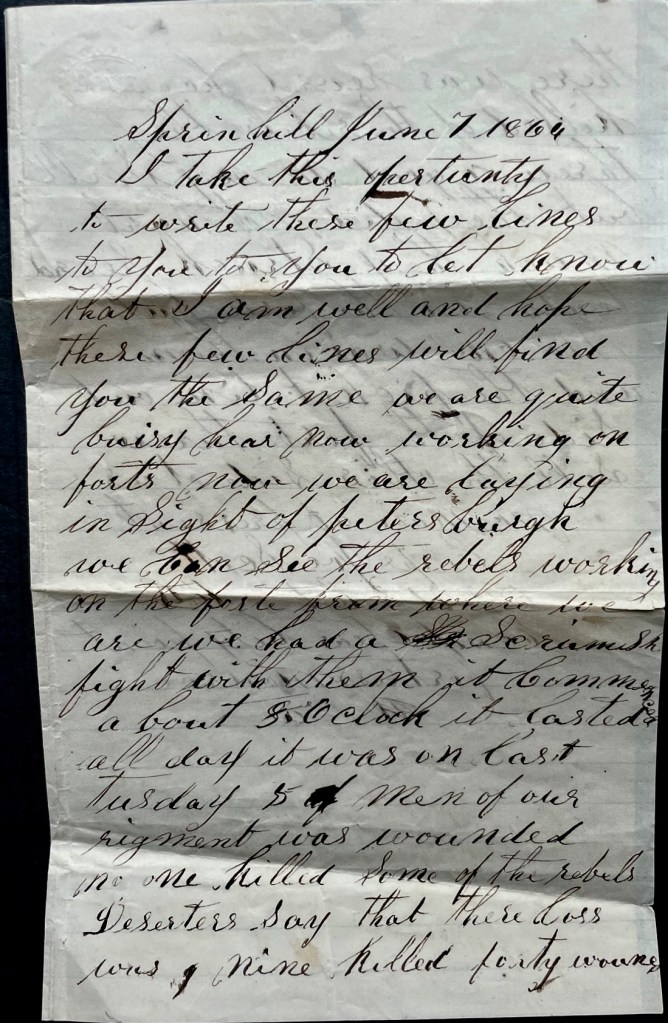 Sprinhill June 7 1864
I take this opertunty
to write these few lines
to you to you to let know
that I aim well and hope
these few lines will find
you the Same we are quite
buisy hear now working on
forts now we are laying
in Sight of petersburgh
we Can See the rebels working
on the forts from where we
are we had a Scrimish
fight with them it Commenced
a bout 8 O Clock it lasted
all day it was on last
tusday 5 men of our
rigment was wounded
no one killed Some of the rebels
Deserters Say that there loss
was 9 nine killed forty wound